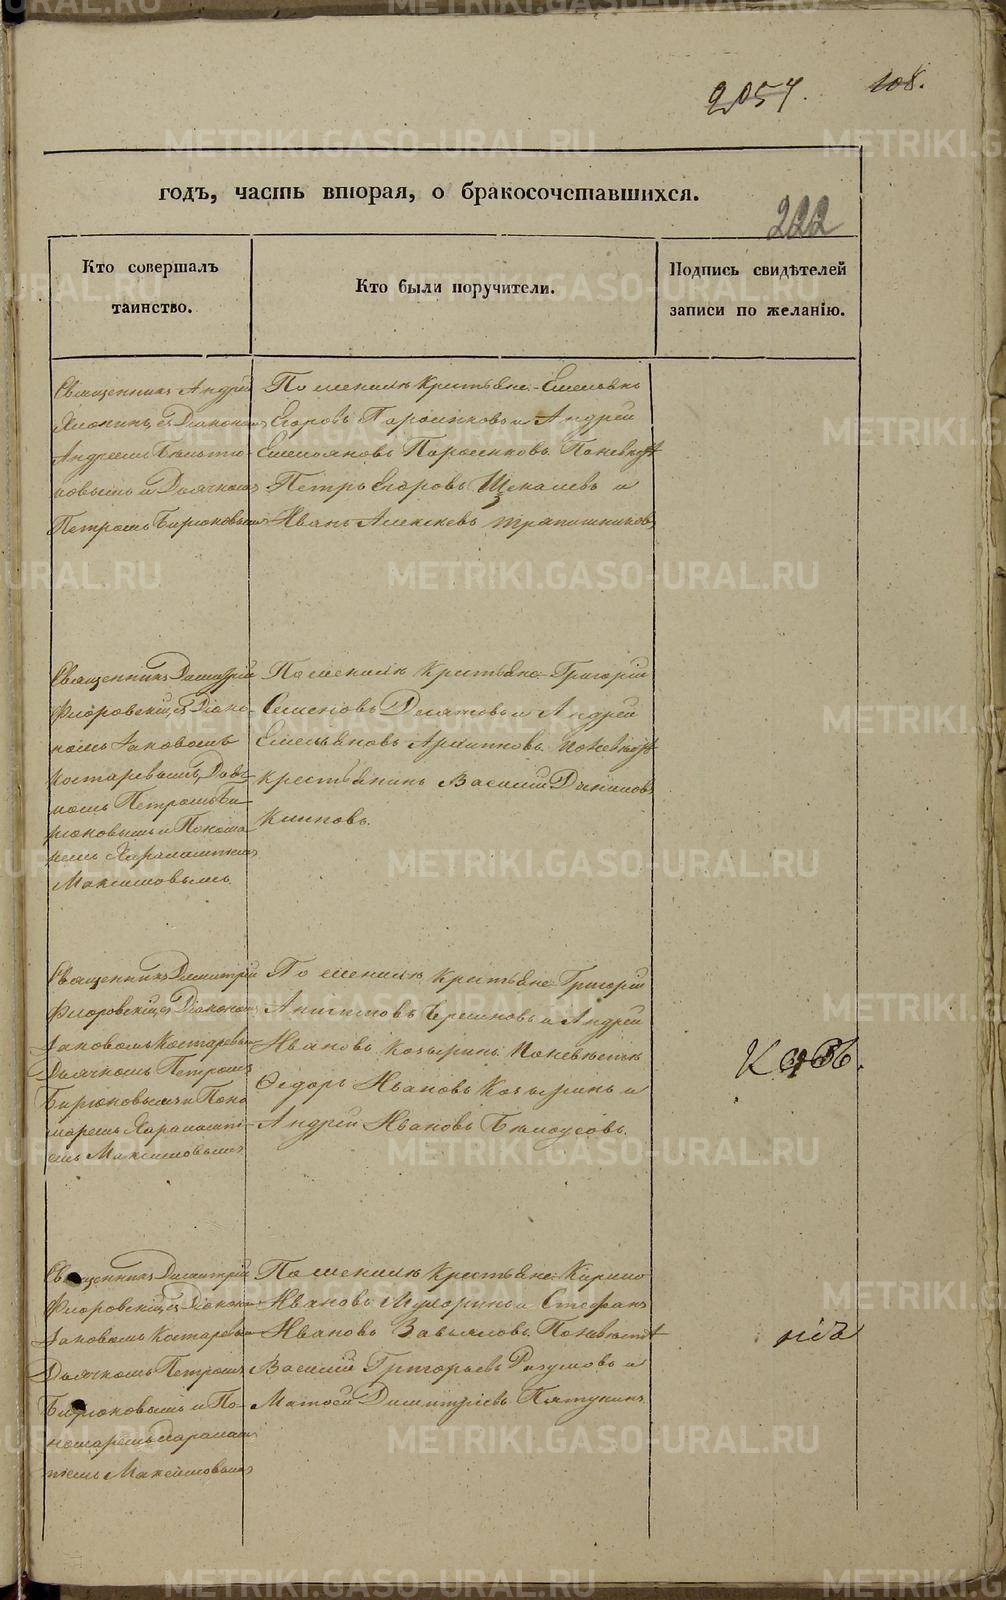 2057.
108.
годъ, часть вторая, о бракосочетавшихся.
222
Кто совершалъ
таинство.
Кто были поручители.
Подпись свидѣтелей
записи по желанію.
Священникъ Андрей
Діаконом
Андреемъ
и Дьячкомъ
Петромъ Бирюковымъ
По женихѣ Крестьяне Емельянъ
Егоровъ и Андрей
Емельяновъ По невѣст
Петръ Егоровъ и
Иванъ Алексѣевъ Трапишниковъ
Священникъ Димитрій
Флоровскій, съ Діако-
номъ Іаковомъ
Костаревымъ, Дьяч
комъ Петромъ Би
рюковымъ и Понома
ремъ
Максимовымъ.
По женихѣ Крестьяне Григорій
Семеновъ и Андрей
Емельяновъ По невѣст
крестьянинъ Василій Даниловъ
Климовъ.
Священникъ Димитрій
Флоровскій, съ Діаконом
Іаковомъ Костаревым
Дьячкомъ Петромъ
Бирюковымъ и Поно
маремъ Харалампі-
емъ Максимовымъ
По женихѣ Крестьяне Григорій
и Андрей
Ивановъ Козыринъ. По невѣстѣ
Ѳедоръ Ивановъ Козыринъ и
Андрей Ивановъ Бѣлоусовъ.
Священникъ Димитрій
Флоровскій, съ Діакон
Іаковомъ Костаревы
Дьячкомъ Петромъ
Бирюковымъ и По-
номаремъ Харалам
піемъ Максимовымъ
По женихѣ Крестьяне Кирило
Ивановъ и Стефанъ
Ивановъ Завьяловъ. По невѣст
Василій Григорьевъ Разумовъ и
Матѳей Димитріевъ Пятунинъ.
METRIKI.GASO-URAL.RU